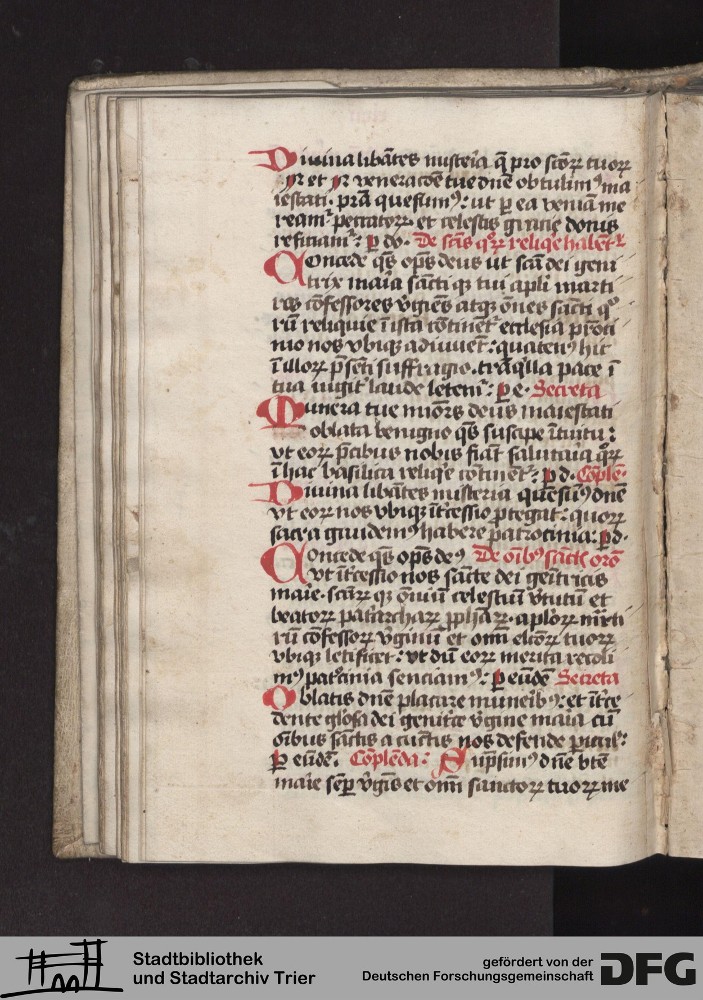 Diuina libātes misteīa q̄ pro sc̄oꝝ tuoꝝ
N et N veneracōe tue dn̄e obtulimꝰ ma
iestati· pr̄a quesumꝰ: ut ꝑ ea veniā me
reamᷣ peccatoꝝ· et celestis gr̄acie donis
reficiamᷣ: ꝑ do· De sc̄is qͦꝝ reliqe habentᷣ
Concede qs̄ op̄s deus ut sc̄a dei geni
trix maīa sācti qꝫ tui apl̄i marti
res cōfessores v̄gīes atqꝫ ōnes sācti qͦ
rū reliquie ī ista cōtinētᷣ ecclesia pr̄oti
nio nos vbiqꝫ adiuuēt: quatenꝰ hic
ī illoꝝ p̄sēti suffragio· trāqͥlla pace ī
tua iugitᷣ laude letemᷣ: ꝑ e· Secreta
Munera tue mīors deus maiestati
oblata benigno qs̄ suscipe ītuitu:
vt eoꝝ p̄cibus nobis fiāt salutaīa qͦꝝ
ī hac basilica reliqͥe cōtinētᷣ: ꝑ d· Cōplē·
Diuina libātes misteria quesumꝰ dn̄e
vt eoꝝ nos vbiqꝫ īt͛cessio ꝓtegat: quoꝝ
sacra gaudemꝰ habere patrocinia: ꝑ d·
Concede qs̄ op̄s deꝰ De oībꝰ sāctꝭ oro
vt īt͛cessio nos sācte dei genitricis
maīe· sc̄aꝝ qꝫ oīuiū celestiū v̄tutū et
beatoꝝ patͥarchaꝝ ꝓphaꝝ· aploꝝ mr̄ti
rū cōfessoꝝ v̄ginū et om̄ elc̄oꝝ tuoꝝ
vbiqꝫ letificet: vt dū eoꝝ merita recoli
mꝰ patͦcinia senciamꝰ: ꝑ eūdē Secreta
Oblatis dn̄e placare muneībꝰ: et īt͛ce
dente gl̄osa dei genitͥce v̄gine maīa cū
oībus sāctis a cūctis nos defende ꝑicul̄:
ꝑ eūdē· Cōplenda: Sūpsimꝰ dn̄e bt̄e
maīe semꝑ v̄gīs et om̄ī sanctoꝝ tuoꝝ me
Stadtbibliothek
und Stadtarchiv Trier
gefördert von der
Deutschen Forschungsgemeinschaft
DFG